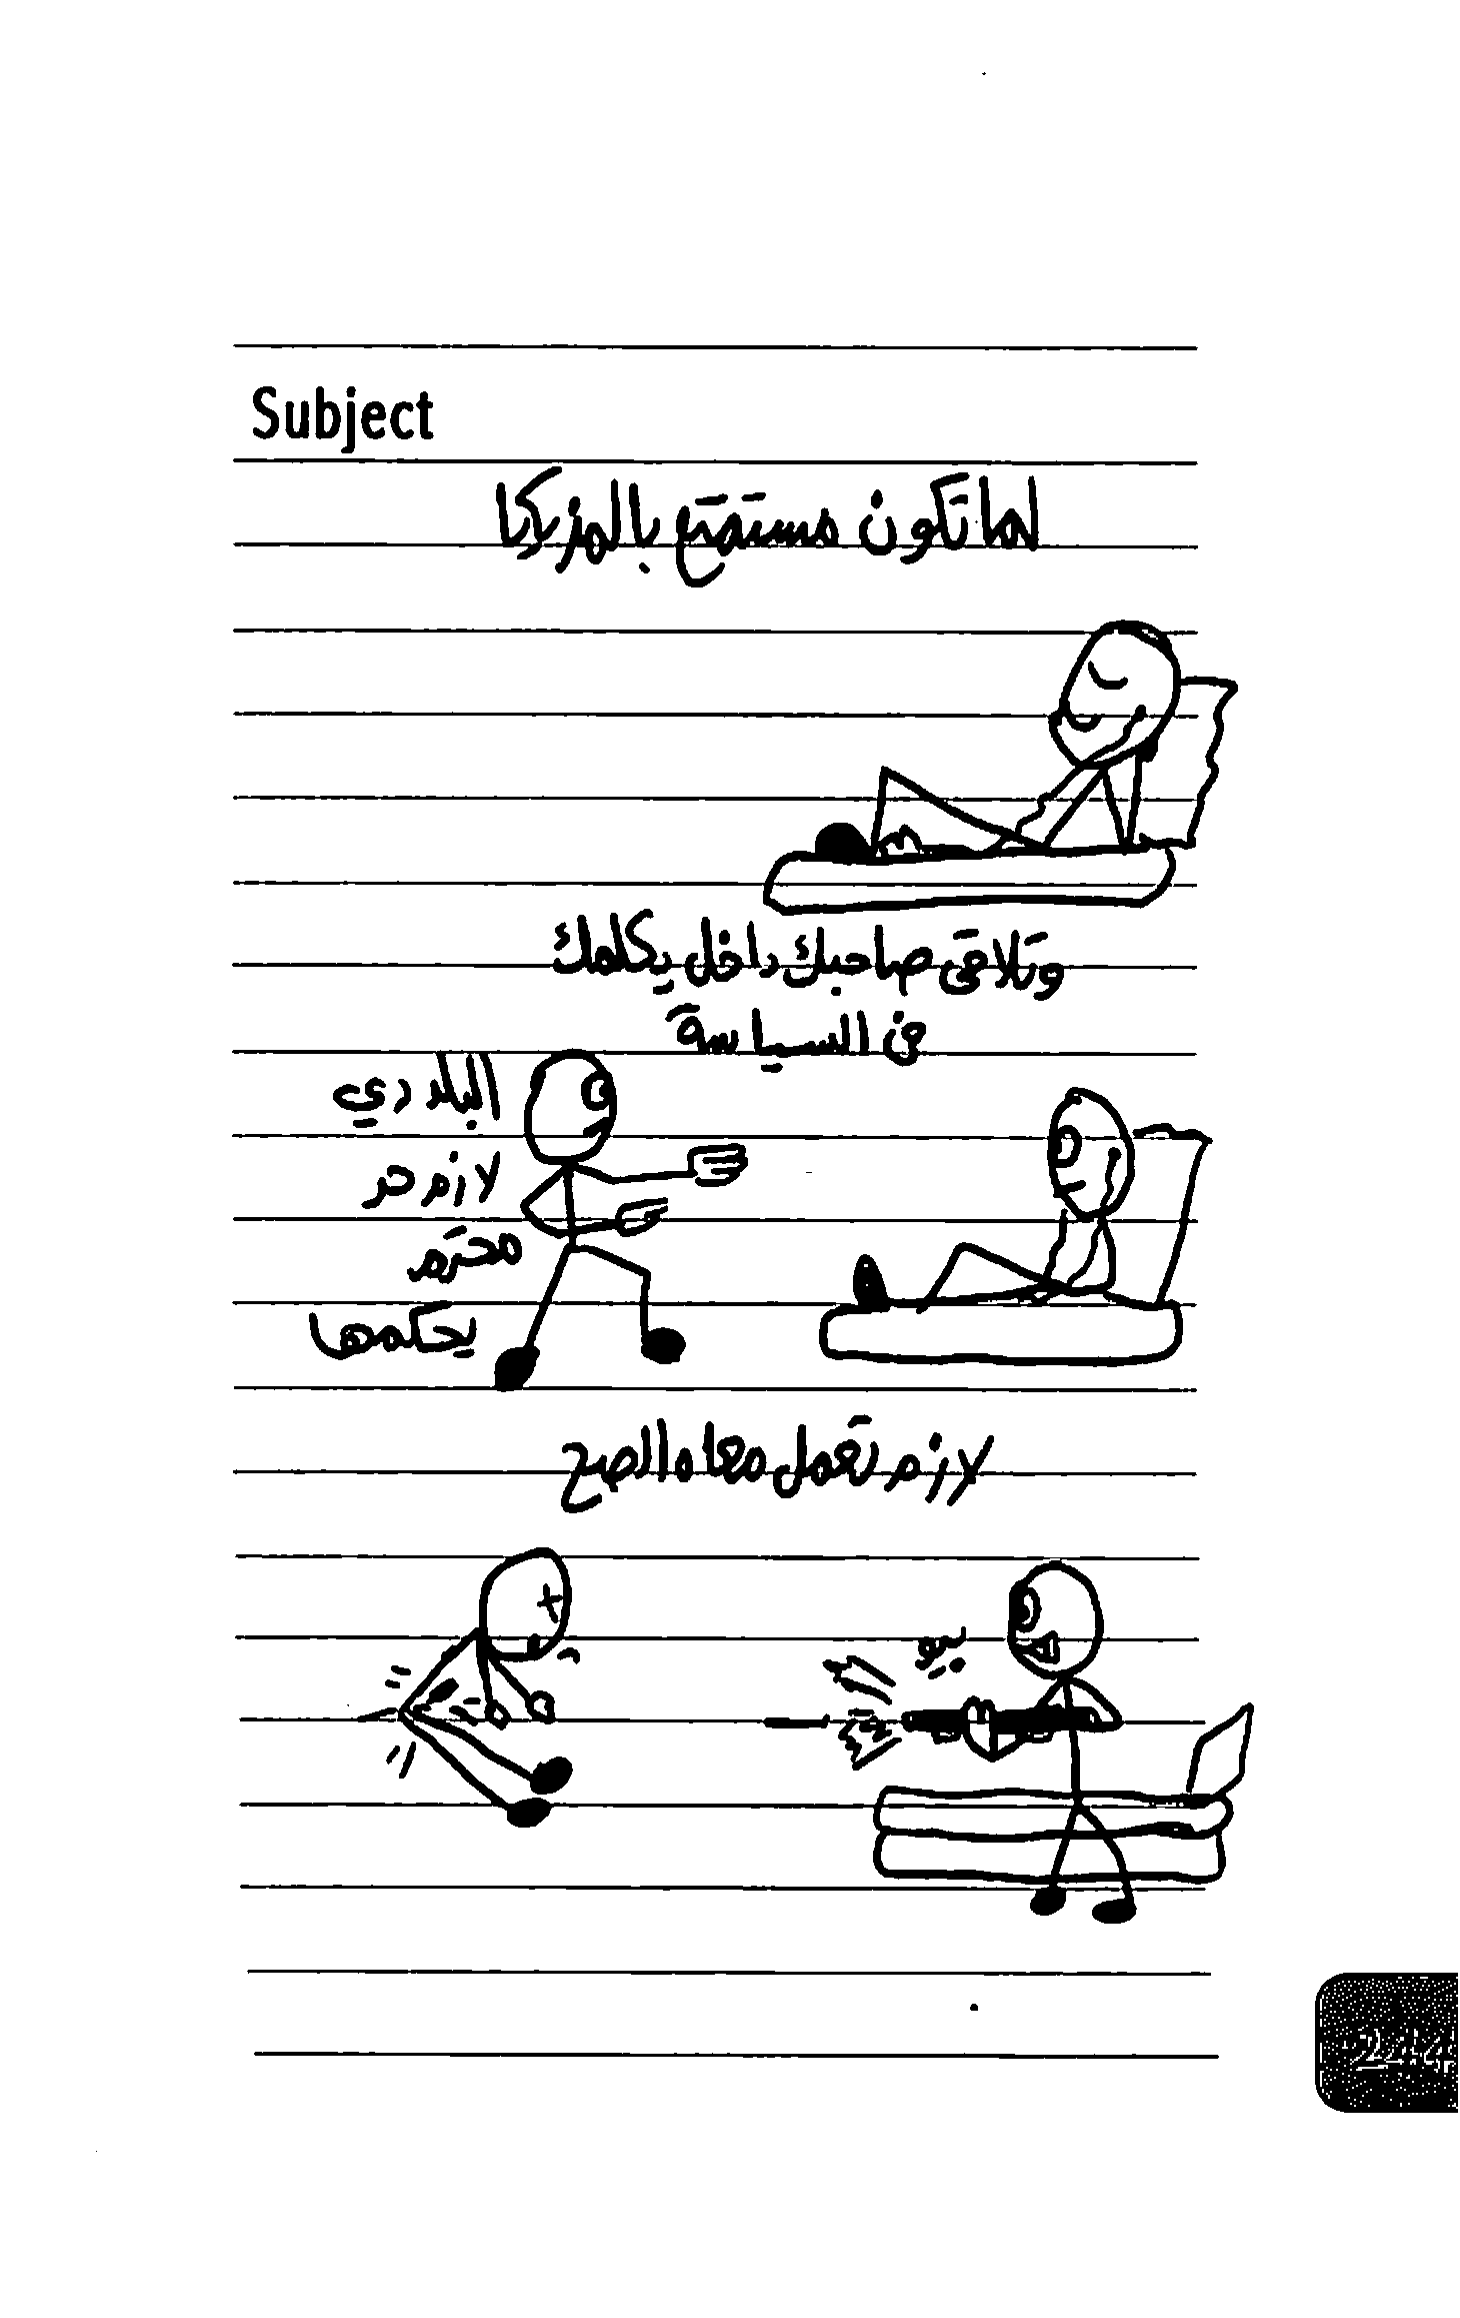 Subject
لما تكون مستمتع بالمزيكا
وتلاقى صاحبك داخل يكلمك
فى السياسة
البلد دي
لازم حد
محترم
يحكمها
لازم تعمل معاه الصح
244